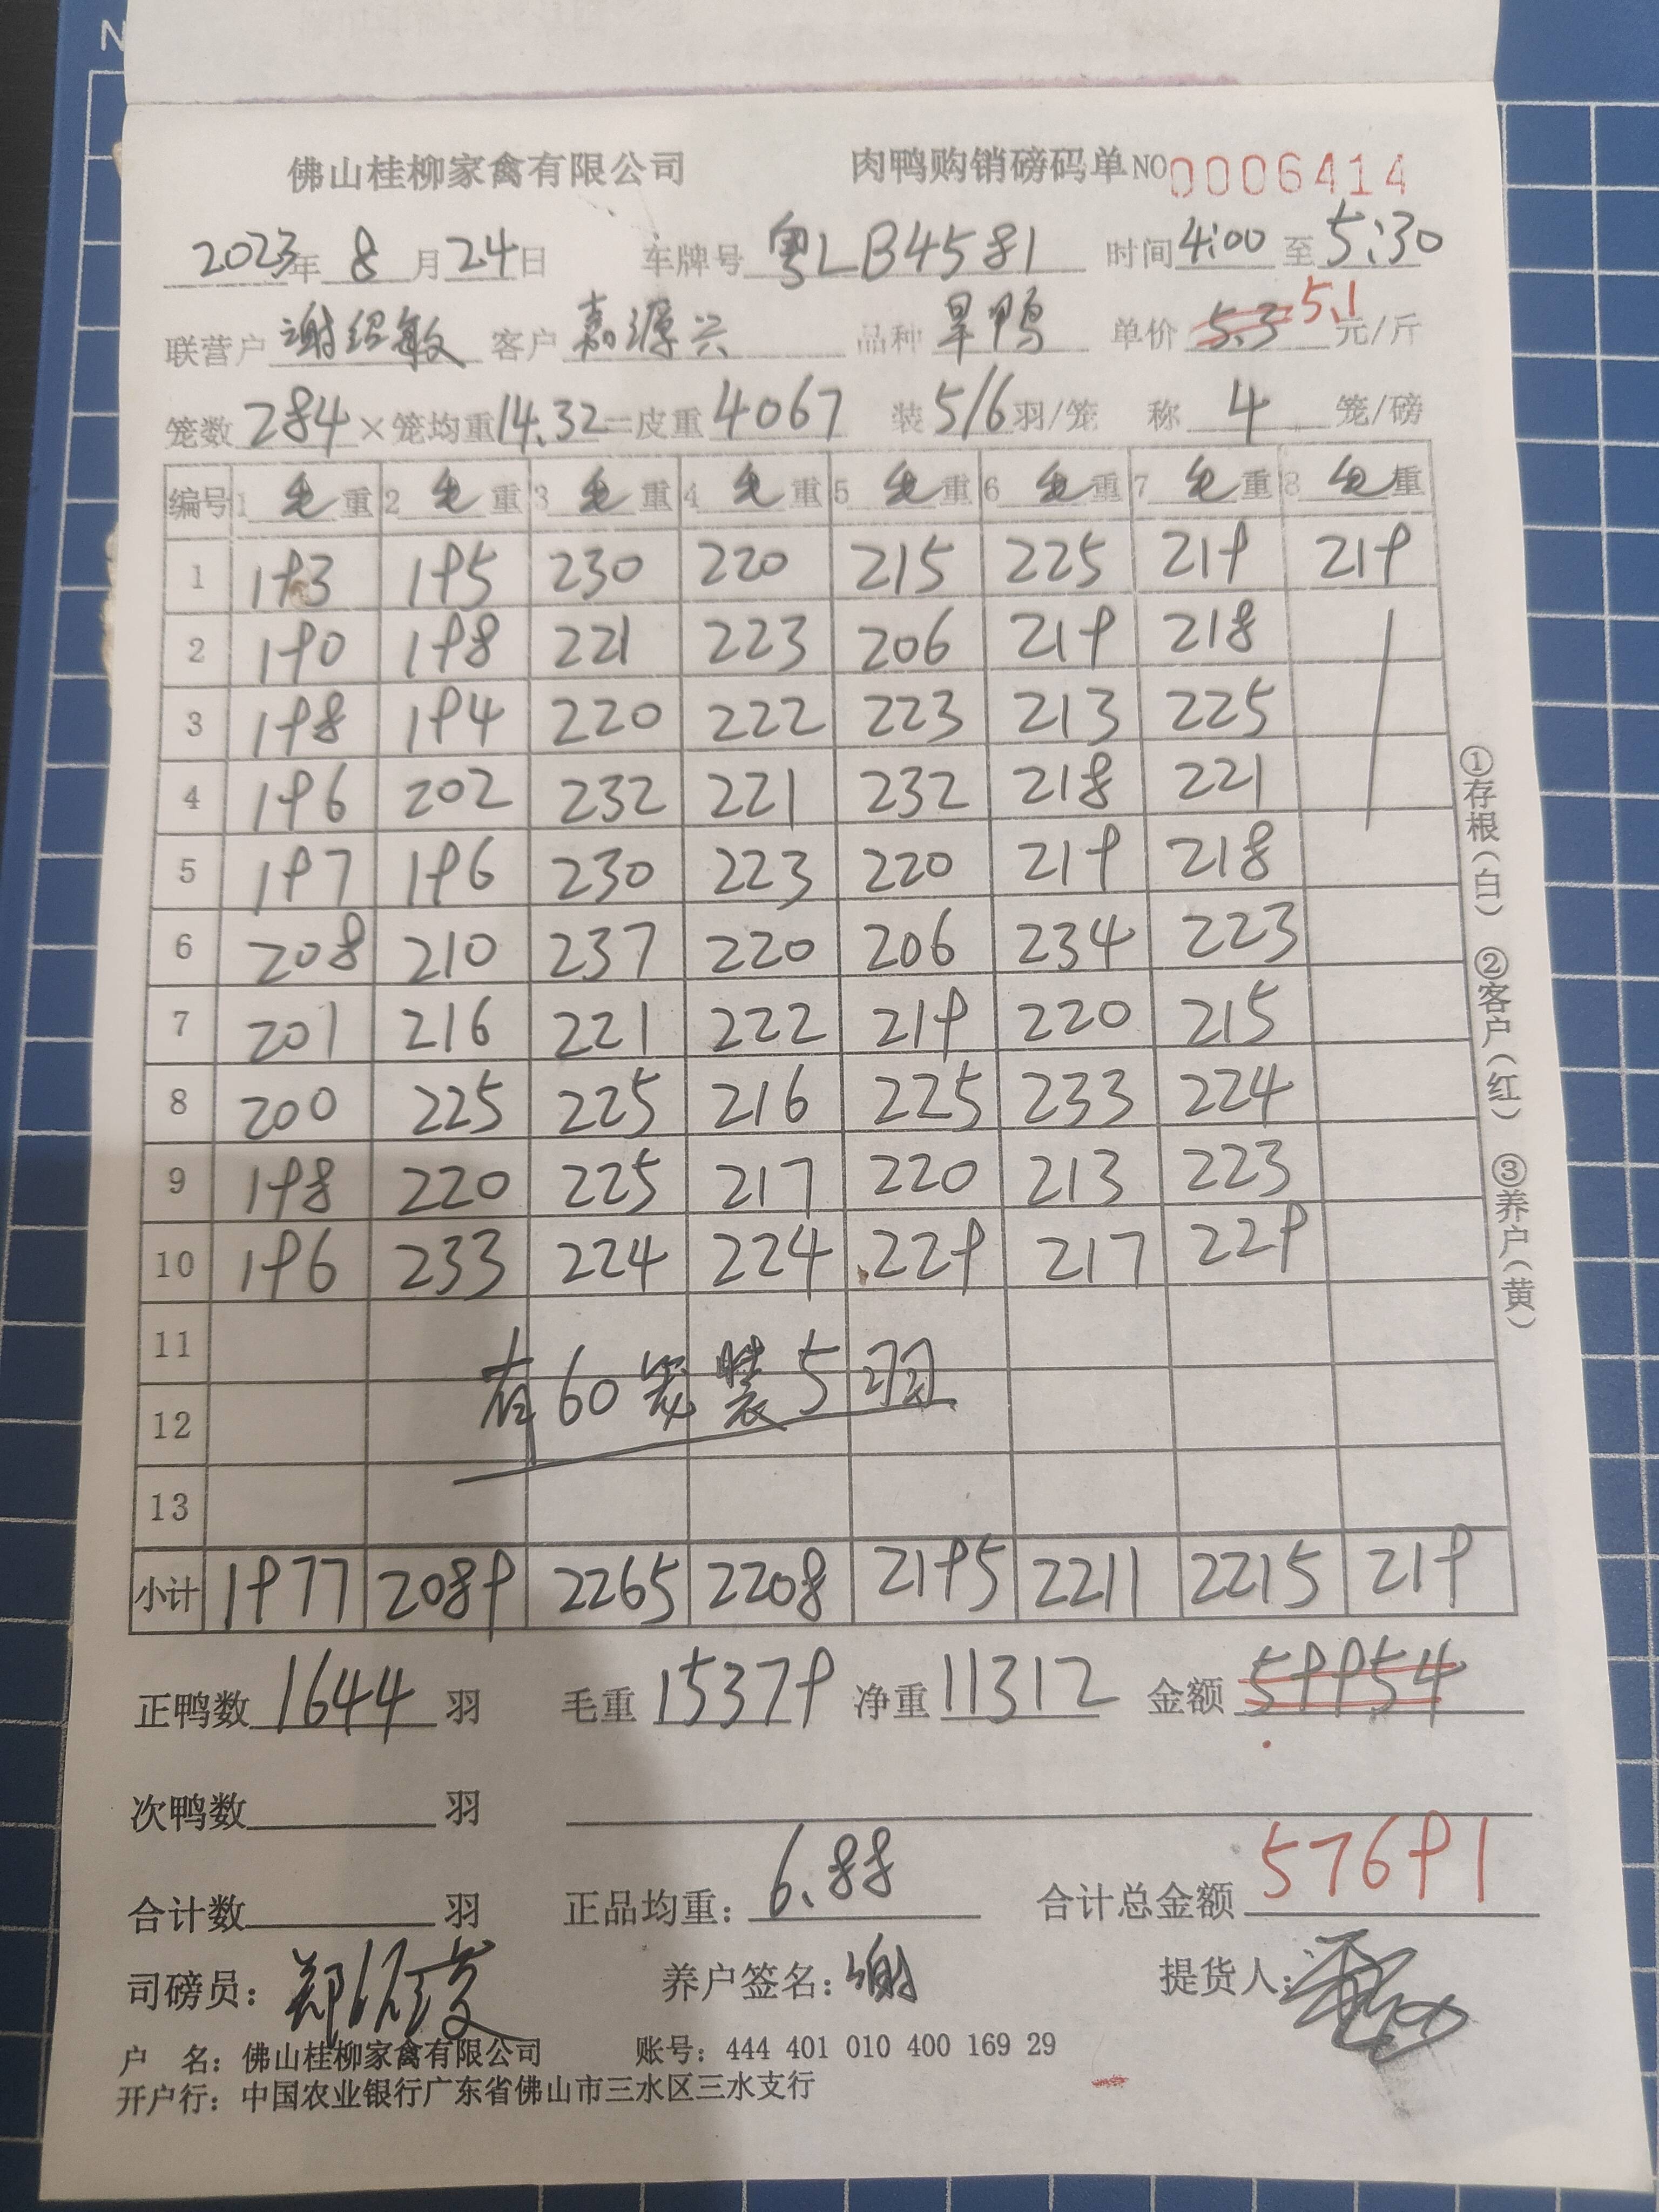 佛山桂柳家禽有限公司 肉鸭购销磅码单 NO 0006414
2023年 8月24日 车牌号 粤LB4581 时间 4:00 至 5:30
联营户 谢绍敏 客户 嘉源兴 品种 旱鸭 单价 5.3 5.1 元/斤
笼数 284 ×笼均重 14.32 =皮重 4067 装 5/6 羽/笼 称 4 笼/磅
编号 1 毛重 2 毛重 3 毛重 4 毛重 5 毛重 6 毛重 7 毛重 8 毛重
1 193 195 230 220 215 225 219 219
2 190 198 221 223 206 219 218
3 198 194 220 222 223 213 225
4 196 202 232 221 232 218 221
5 197 196 230 223 220 219 218
6 208 210 237 220 206 234 223
7 201 216 221 222 219 220 215
8 200 225 225 216 225 233 224
9 198 220 225 217 220 213 223
10 196 233 224 224 229 217 229
11
有60笼装5羽
12
13
小计 1977 2089 2265 2208 2195 2211 2215 219
①存根(白) ②客户(红) ③养户(黄)
正鸭数 1644 羽 毛重 15379 净重 11312 金额 59954
次鸭数 羽
合计数 羽 正品均重: 6.88 合计总金额 57691
司磅员: 郑 养户签名: 谢 提货人:
户 名: 佛山桂柳家禽有限公司 账号: 444 401 010 400 169 29
开户行: 中国农业银行广东省佛山市三水区三水支行